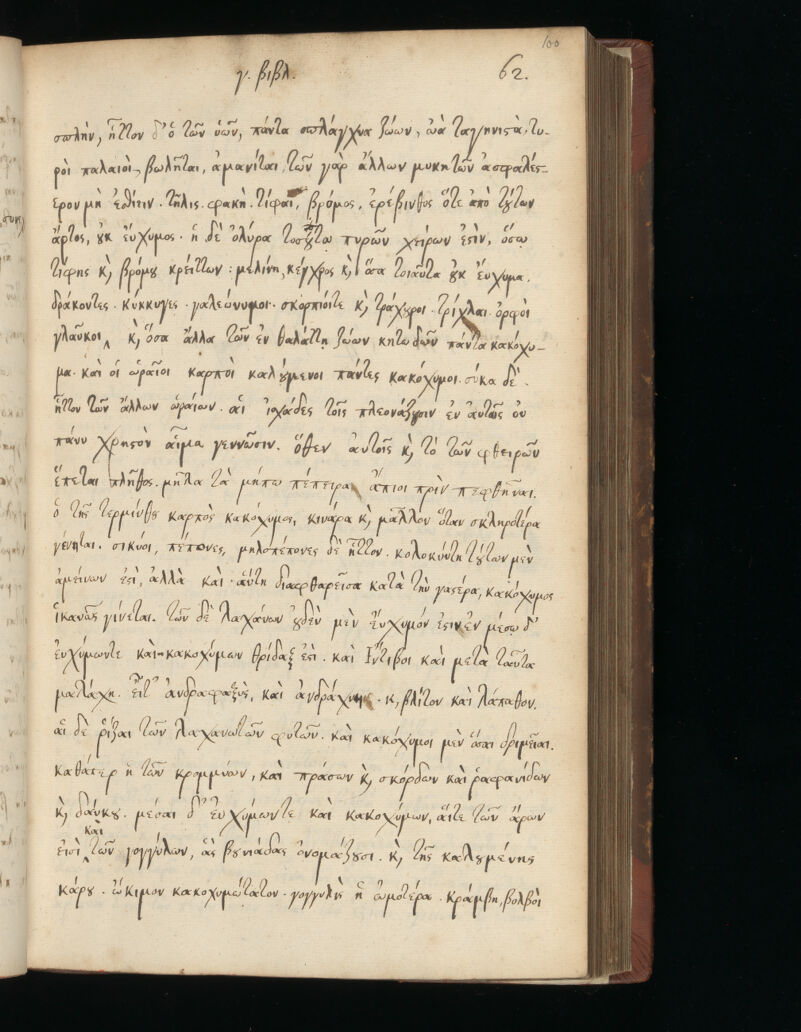 100
γ. βιβλ. 62.
σπλὴν, ἧττον δ' ὁ τῶν ὑῶν, πάντα σπλάγχνα ζώων, ὠὰ ταγηνιστὰ, τυ-
ροὶ παλαιοὶ, βωλῆται, ἀμανῖται, τῶν γὰρ ἄλλων μυκητῶν ἀσφαλές-
ερον μὴ ἐσθίειν. τῆλις. φακῆ. τίφαι, βρόμος, ἐρέβινθος ὅτε ἀπὸ τούτων
ἄρτος, οὐκ εὔχυμος. ἡ δὲ ὀλύρα τοσούτῳ πυρῶν χείρων ἐστὶν, ὅσῳ
τίφης κ̀ βρόμου κρείττων: μελίνη, κέγχρος κ̀ ὅσα τοιαῦτα οὐκ εὔχυμα.
δράκοντες. κύκκυγες. γαλεώνυμοι. σκορπιοίτε κ̀ τράχουροι. τρίχλαι. ὀρφοὶ
γλαῦκοι κ̀ ὅσα ἄλλα τῶν ἐν θαλάττῃ ζώων κητωδῶν πάντα κακόχυ-
μα. καὶ οἱ ὡραῖοι καρποὶ καλούμενοι πάντες κακόχυμοι. σύκα δὲ.
ἧττον τῶν ἄλλων ὡραίων. αἱ ἰσχάδες τοῖς πλεονάζουσιν ἐν αὐταῖς οὐ
πάνυ χρηστὸν αἷμα γεννῶσιν. ὅθεν αὐτοῖς κ̀ τὸ τῶν φθειρῶν
ἕπεται πλῆθος. μῆλα τὰ μήπω πέπειρα, ἄπιοι πρὶν πεφθῆναι.
ὁ τῆς τερμίνθου καρπὸς κακόχυμος, κινάρα κ̀ μᾶλλον ὅταν σκληροτέρα
γένηται. σικύοι, πέπονες, μηλοπέπονες δὲ ἧττον. κολοκύντη τούτων μὲν
ἀμείνων ἐστὶ, ἀλλὰ καὶ αὕτη διαφθαρεῖσα κατὰ τὴν γαστέρα, κακόχυμος
ἱκανῶς γίνεται. τῶν δὲ λαχάνων οὐδὲν μὲν εὔχυμόν ἐστιν ἐν μέσῳ δ'
εὐχύμωντε καὶ κακοχύμων θρίδαξ ἐστὶ. καὶ Ἴντιβοι καὶ μετὰ ταῦτα
μαλάχη. Εἶτ' ἀνδράφαξυς, καὶ ἀνδράχνη. κ, βλίτον καὶ λάπαθον.
αἱ δὲ ῥίζαι τῶν λαχανωτῶν φυτῶν. καὶ κακόχυμοι μὲν ὅσαι δριμεῖαι.
καθάπερ ἡ τῶν κρομμύων, καὶ πράσων κ̀ σκόρδων καὶ ῥαφανίδων
κ̀ δαύκου. μέσαι δ' εὐχύμωντε καὶ κακοχύμων, αἵτε τῶν ἄρων
εἰσὶ καὶ τῶν γογγύλων, ἃς βουνιάδας ὀνομάζουσι. κ̀ τῆς καλουμένης
κάρου. ὤκιμον κακοχυμώτατον. γογγυλὶς ἡ ὠμοτέρα. κράμβη, βολβοὶ